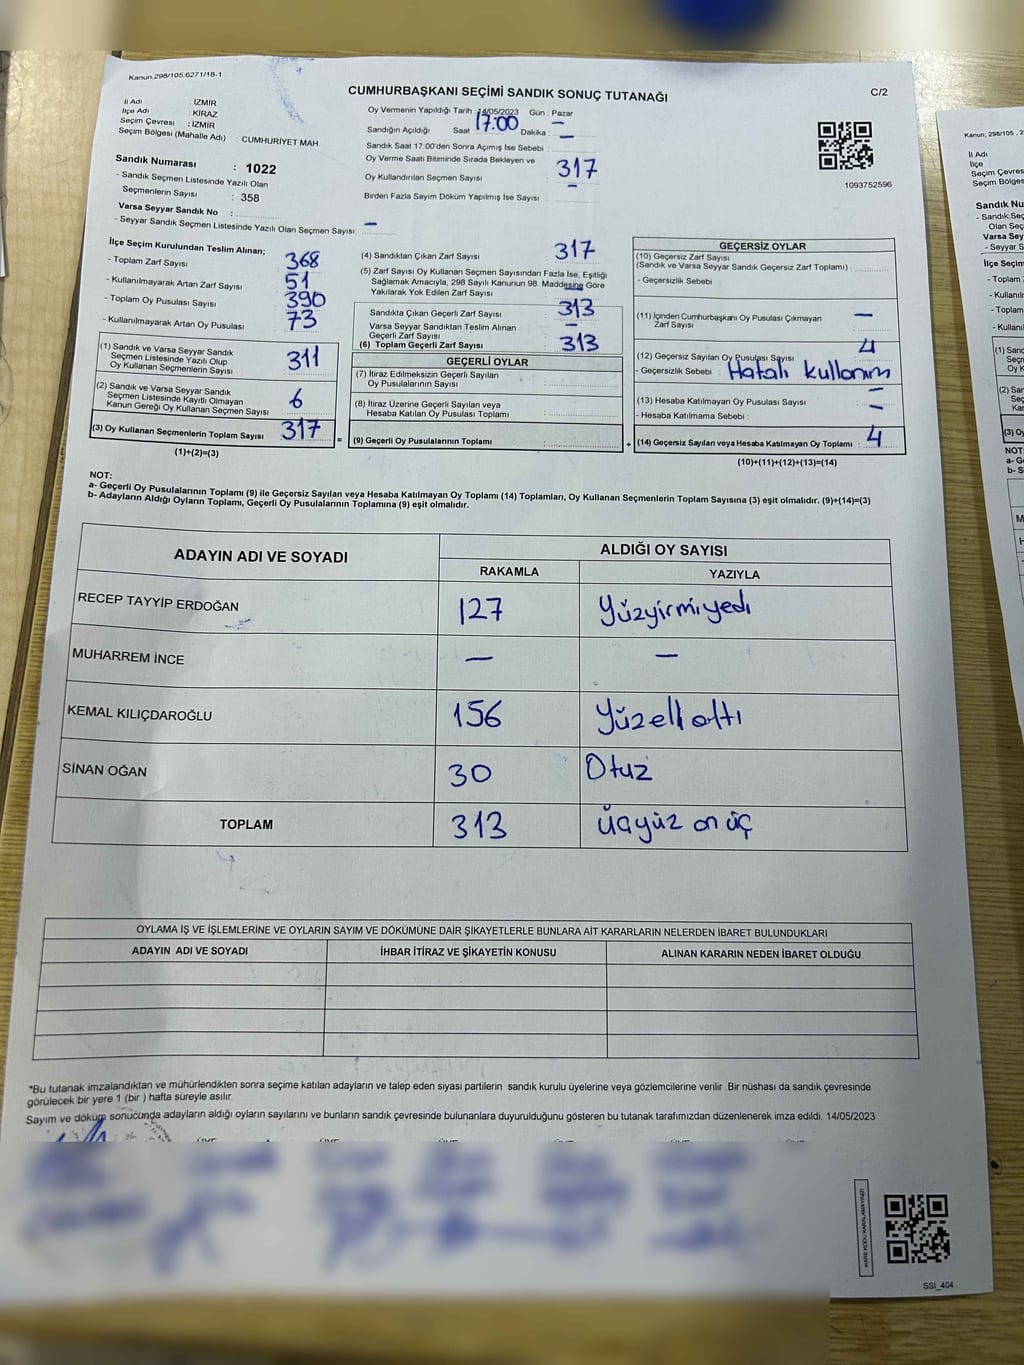 Kanun.298/105.6271/18-1
CUMHURBAŞKANI SEÇİMİ SANDIK SONUÇ TUTANAĞI
C/2
İl Adı : İZMİR
İlçe Adı : KİRAZ
Seçim Çevresi : İZMİR
Seçim Bölgesi (Mahalle Adı) : CUMHURİYET MAH
Sandık Numarası : 1022
- Sandık Seçmen Listesinde Yazılı Olan
Seçmenlerin Sayısı : 358
Varsa Seyyar Sandık No :
- Seyyar Sandık Seçmen Listesinde Yazılı Olan Seçmen Sayısı: —
Oy Vermenin Yapıldığı Tarih : 14/05/2023 Gün : Pazar
Sandığın Açıldığı Saat 17:00 Dakika : —
Sandık Saat 17.00'den Sonra Açımış İse Sebebi : —
Oy Verme Saati Bitiminde Sırada Bekleyen ve
Oy Kullandırılan Seçmen Sayısı : 317
Birden Fazla Sayım Döküm Yapılmış İse Sayısı : —
1093752596
İlçe Seçim Kurulundan Teslim Alınan;
- Toplam Zarf Sayısı 368
- Kullanılmayarak Artan Zarf Sayısı 51
- Toplam Oy Pusulası Sayısı 390
- Kullanılmayarak Artan Oy Pusulası 73
(1) Sandık ve Varsa Seyyar Sandık
Seçmen Listesinde Yazılı Olup
Oy Kullanan Seçmenlerin Sayısı 311
(2) Sandık ve Varsa Seyyar Sandık
Seçmen Listesinde Kayıtlı Olmayan
Kanun Gereği Oy Kullanan Seçmen Sayısı 6
(3) Oy Kullanan Seçmenlerin Toplam Sayısı 317
(1)+(2)=(3)
=
(4) Sandıktan Çıkan Zarf Sayısı 317
(5) Zarf Sayısı Oy Kullanan Seçmen Sayısından Fazla İse, Eşitliği
Sağlamak Amacıyla, 298 Sayılı Kanunun 98. Maddesine Göre
Yakılarak Yok Edilen Zarf Sayısı —
Sandıkta Çıkan Geçerli Zarf Sayısı 313
Varsa Seyyar Sandıktan Teslim Alınan
Geçerli Zarf Sayısı —
(6) Toplam Geçerli Zarf Sayısı 313
GEÇERLİ OYLAR
(7) İtiraz Edilmeksizin Geçerli Sayılan
Oy Pusulalarının Sayısı
(8) İtiraz Üzerine Geçerli Sayılan veya
Hesaba Katılan Oy Pusulası Toplamı
(9) Geçerli Oy Pusulalarının Toplamı
+
GEÇERSİZ OYLAR
(10) Geçersiz Zarf Sayısı
(Sandık ve Varsa Seyyar Sandık Geçersiz Zarf Toplamı)
- Geçersizlik Sebebi :
(11) İçinden Cumhurbaşkanı Oy Pusulası Çıkmayan
Zarf Sayısı —
(12) Geçersiz Sayılan Oy Pusulası Sayısı 4
- Geçersizlik Sebebi : Hatalı kullanım
(13) Hesaba Katılmayan Oy Pusulası Sayısı —
- Hesaba Katılmama Sebebi : —
(14) Geçersiz Sayılan veya Hesaba Katılmayan Oy Toplamı 4
(10)+(11)+(12)+(13)=(14)
NOT:
a- Geçerli Oy Pusulalarının Toplamı (9) ile Geçersiz Sayılan veya Hesaba Katılmayan Oy Toplamı (14) Toplamları, Oy Kullanan Seçmenlerin Toplam Sayısına (3) eşit olmalıdır. (9)+(14)=(3)
b- Adayların Aldığı Oyların Toplamı, Geçerli Oy Pusulalarının Toplamına (9) eşit olmalıdır.
ADAYIN ADI VE SOYADI
ALDIĞI OY SAYISI
RAKAMLA YAZIYLA
RECEP TAYYİP ERDOĞAN 127 Yüzyirmiyedi
MUHARREM İNCE — —
KEMAL KILIÇDAROĞLU 156 Yüzelli altı
SİNAN OĞAN 30 Otuz
TOPLAM 313 üçyüz on üç
OYLAMA İŞ VE İŞLEMLERİNE VE OYLARIN SAYIM VE DÖKÜMÜNE DAİR ŞİKAYETLERLE BUNLARA AİT KARARLARIN NELERDEN İBARET BULUNDUKLARI
ADAYIN ADI VE SOYADI İHBAR İTİRAZ VE ŞİKAYETİN KONUSU ALINAN KARARIN NEDEN İBARET OLDUĞU
*Bu tutanak imzalandıktan ve mühürlendikten sonra seçime katılan adayların ve talep eden siyasi partilerin sandık kurulu üyelerine veya gözlemcilerine verilir .Bir nüshası da sandık çevresinde
görülecek bir yere 1 (bir ) hafta süreyle asılır.
Sayım ve döküm sonucunda adayların aldığı oyların sayılarını ve bunların sandık çevresinde bulunanlara duyurulduğunu gösteren bu tutanak tarafımızdan düzenlenerek imza edildi. 14/05/2023
SSI_404